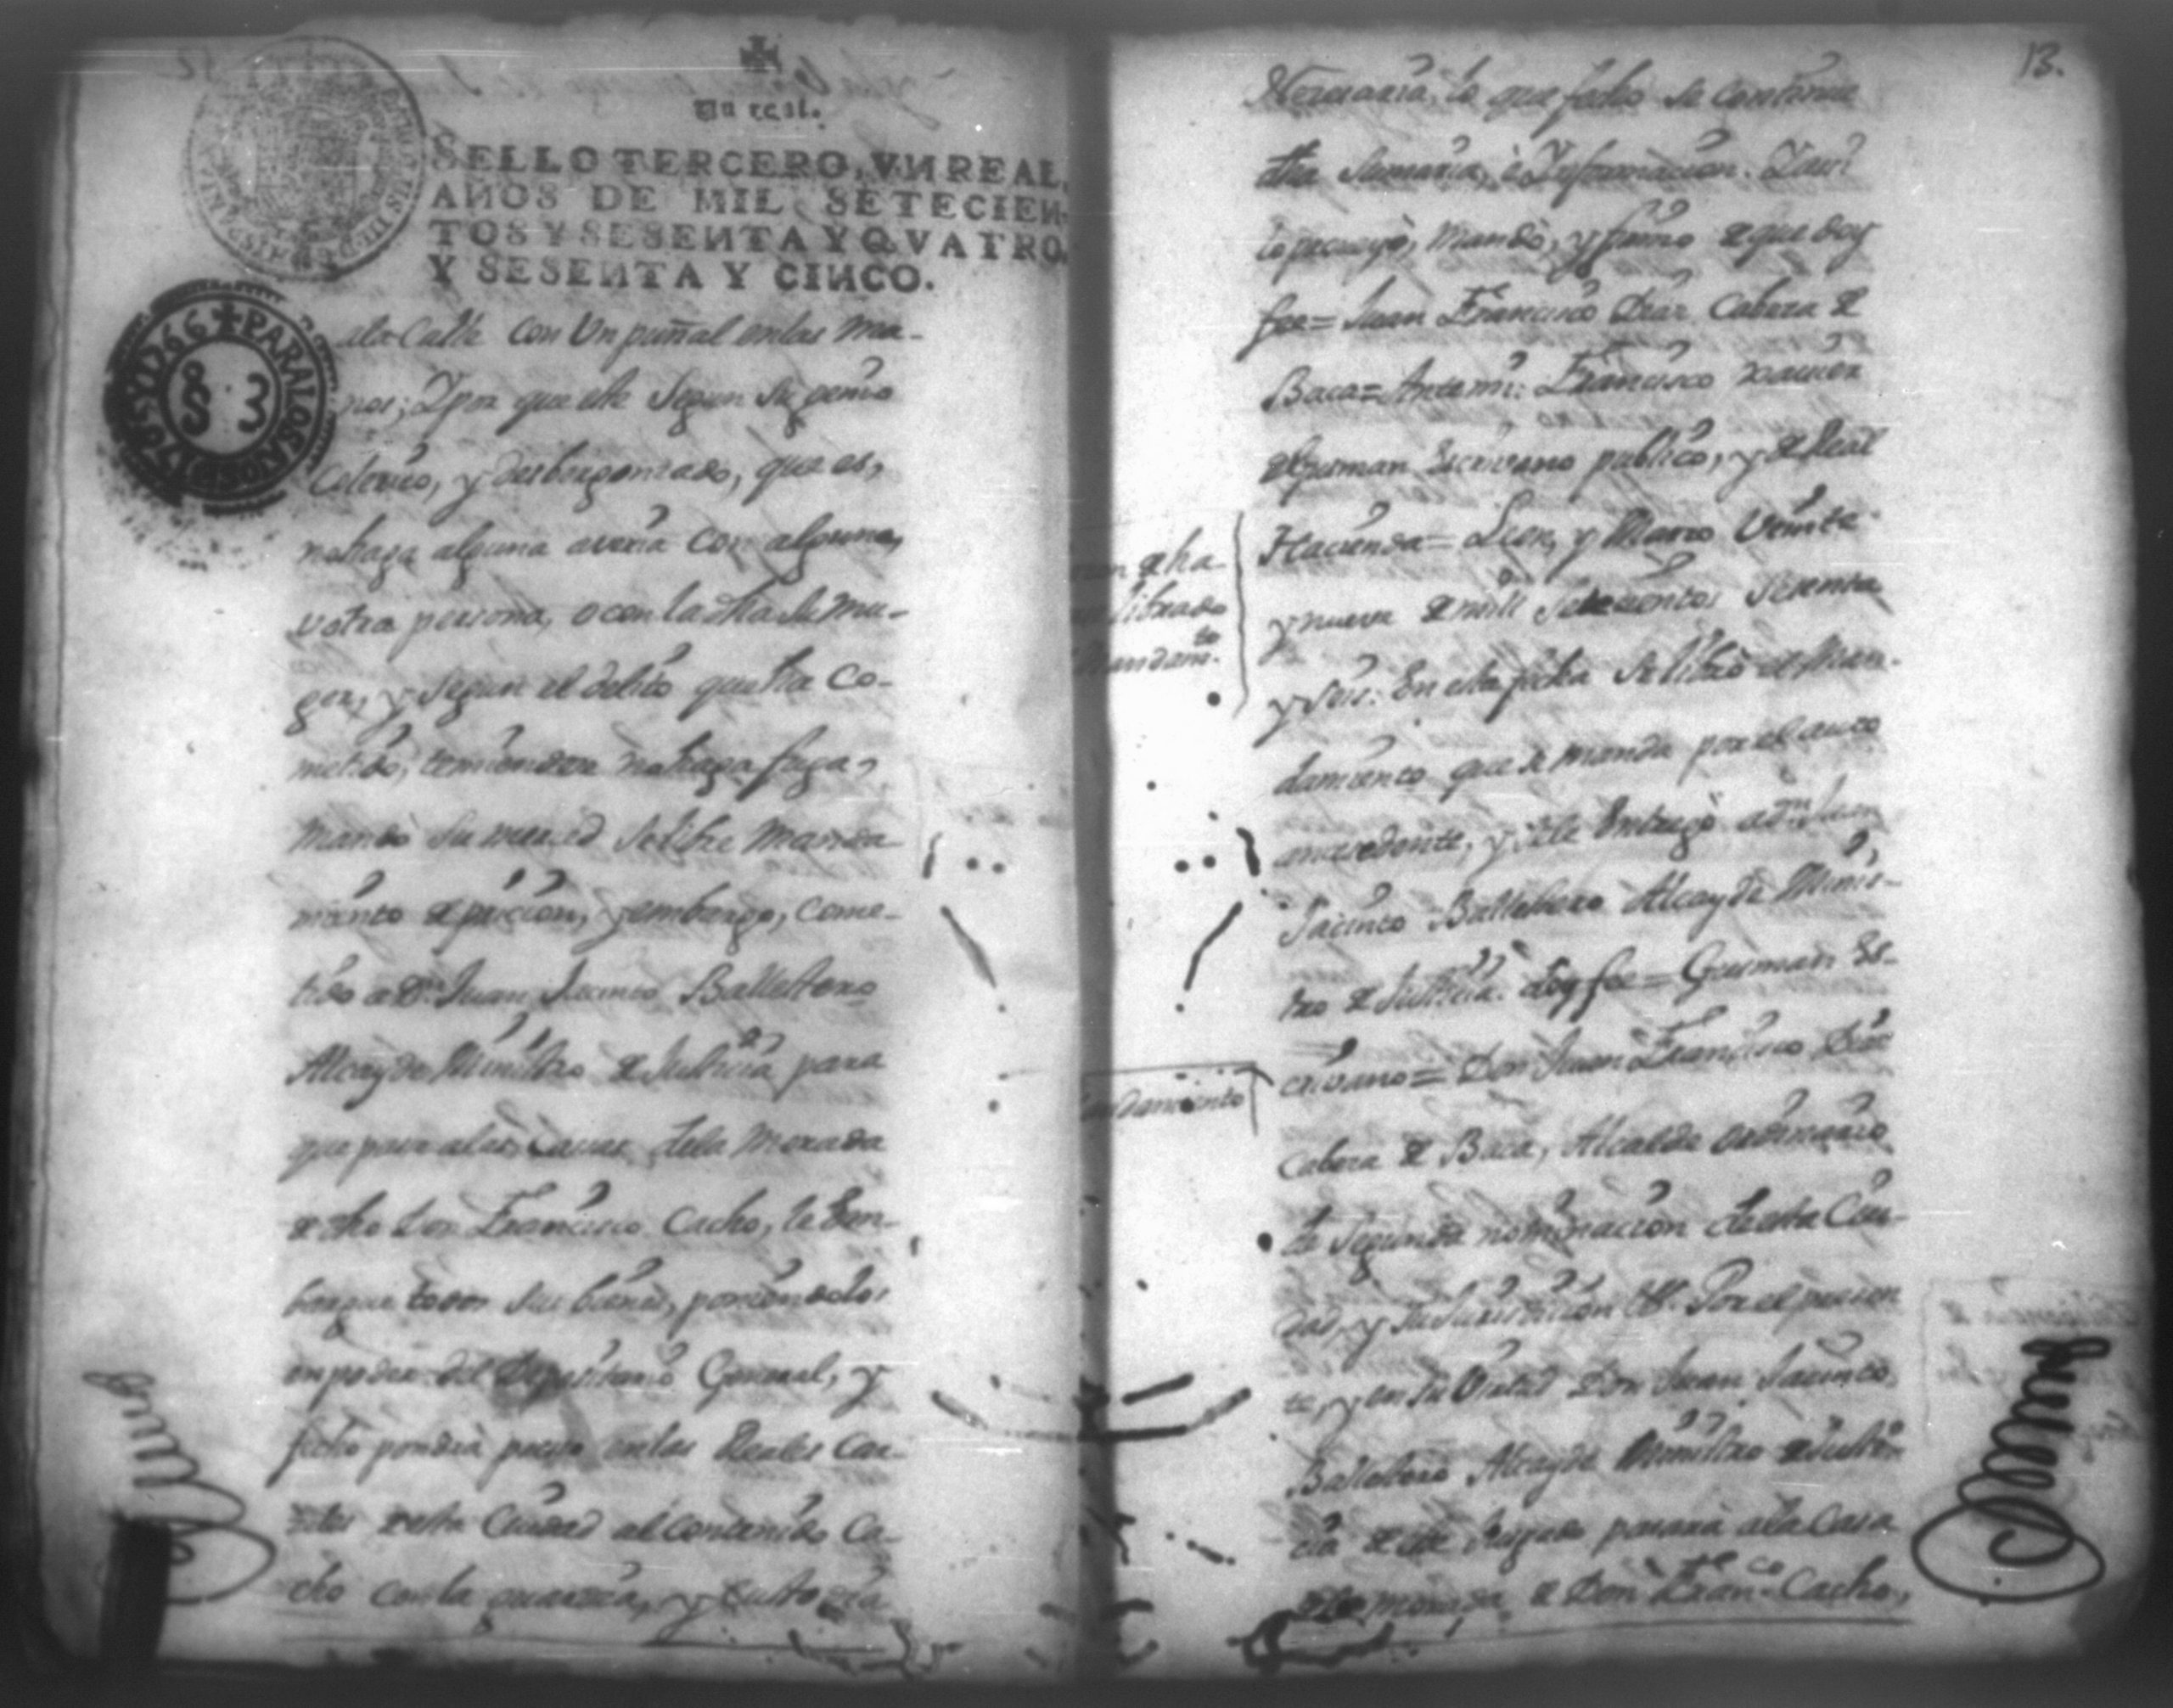 Un real.
SELLO TERCERO, VN REAL,
AÑOS DE MIL SETECIEN-
TOS Y SESENTA Y QVATRO,
Y SESENTA Y CINCO.
PARA LOS AÑOS D 1765 Y 1766
S 3
ala Calle con Un puñal enlas ma-
nos; Y por que este Segun Su genio
Colerico, y desbergonzado, que es,
nohaga alguna averia con alguna,
u otra persona, o con la dha Su mu-
ger, y Segun el delito que ha co-
metido, temiendose nohaga fuga,
mandò Su merced Se libre manda
miento de pricion, y embargo, come-
tido a Dn. Juan Jacinto Ballestero
Alcayde Ministro de Justicia para
que pase alas Casas dela Morada
de dho Don Francisco Cacho, le Em-
bargue todos Sus bienes, poniendolos
en poder del Depositario General, y
fecho pondrà preso enlas Reales Car-
celes de esta Ciudad al contenido Ca-
cho con la guardia, y custodia
13.
Nesesaria, lo que fecho se continue
dha Sumaria, è Ynformacion. Y asi
lo proveyò, mandò, y firmò de que doy
fee= Juan Francisco Diaz Cabeza de
Baca= Ante mi: Francisco Xavier
de Gusman Escrivano publico, y de Real
Hacienda= Leon, y Marzo Veinte
y nueve de mill Setecientos Sesenta
y Seis: En esta fecha Se librò el Man-
damiento que se manda por el auto
antesedente, y Se le Entregò a Dn. Juan
Jacinto Ballestero Alcayde Minis-
tro de Justicia: doy fee= Gusman Es-
crivano= Don Juan Francisco Diaz
Cabeza de Baca, Alcalde Ordinario
de Segunda nominacion de esta Ciu-
dad, y Su Jurisdiccion &a. Por el presen
te, y en Su Virtud Don Juan Jacinto
Ballestero Alcayde Ministro de Justi-
cia de este Jusgado pasarà ala Casa
de la morada de Don Franco. Cacho,
de ha
librado
mandamto.
mandamiento